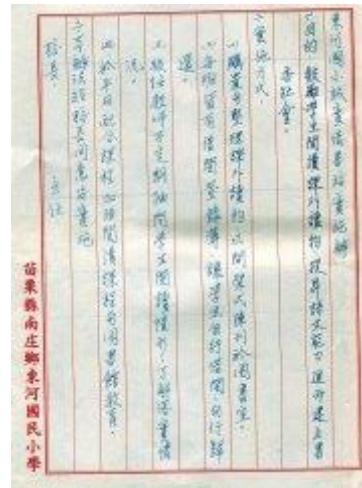 東河國小誠實借書站實施辦
一目的 鼓勵學生閱讀課外讀物 提升語文能力 進而建立書
香社會。
二實施方式：
㈠購置與整理課外讀物 以開架式陳列於圖書室。
㈡各班皆有借閱登錄簿 讓學生自行借閱 自行歸
還。
㈢級任教師不定期抽問學生閱讀情形 了解其書情
況。
㈣於平日配合課程加強閱讀課程與圖書館教育。
三本辦法經校長同意後實施
校長： 主任
苗栗縣南庄鄉東河國民小學